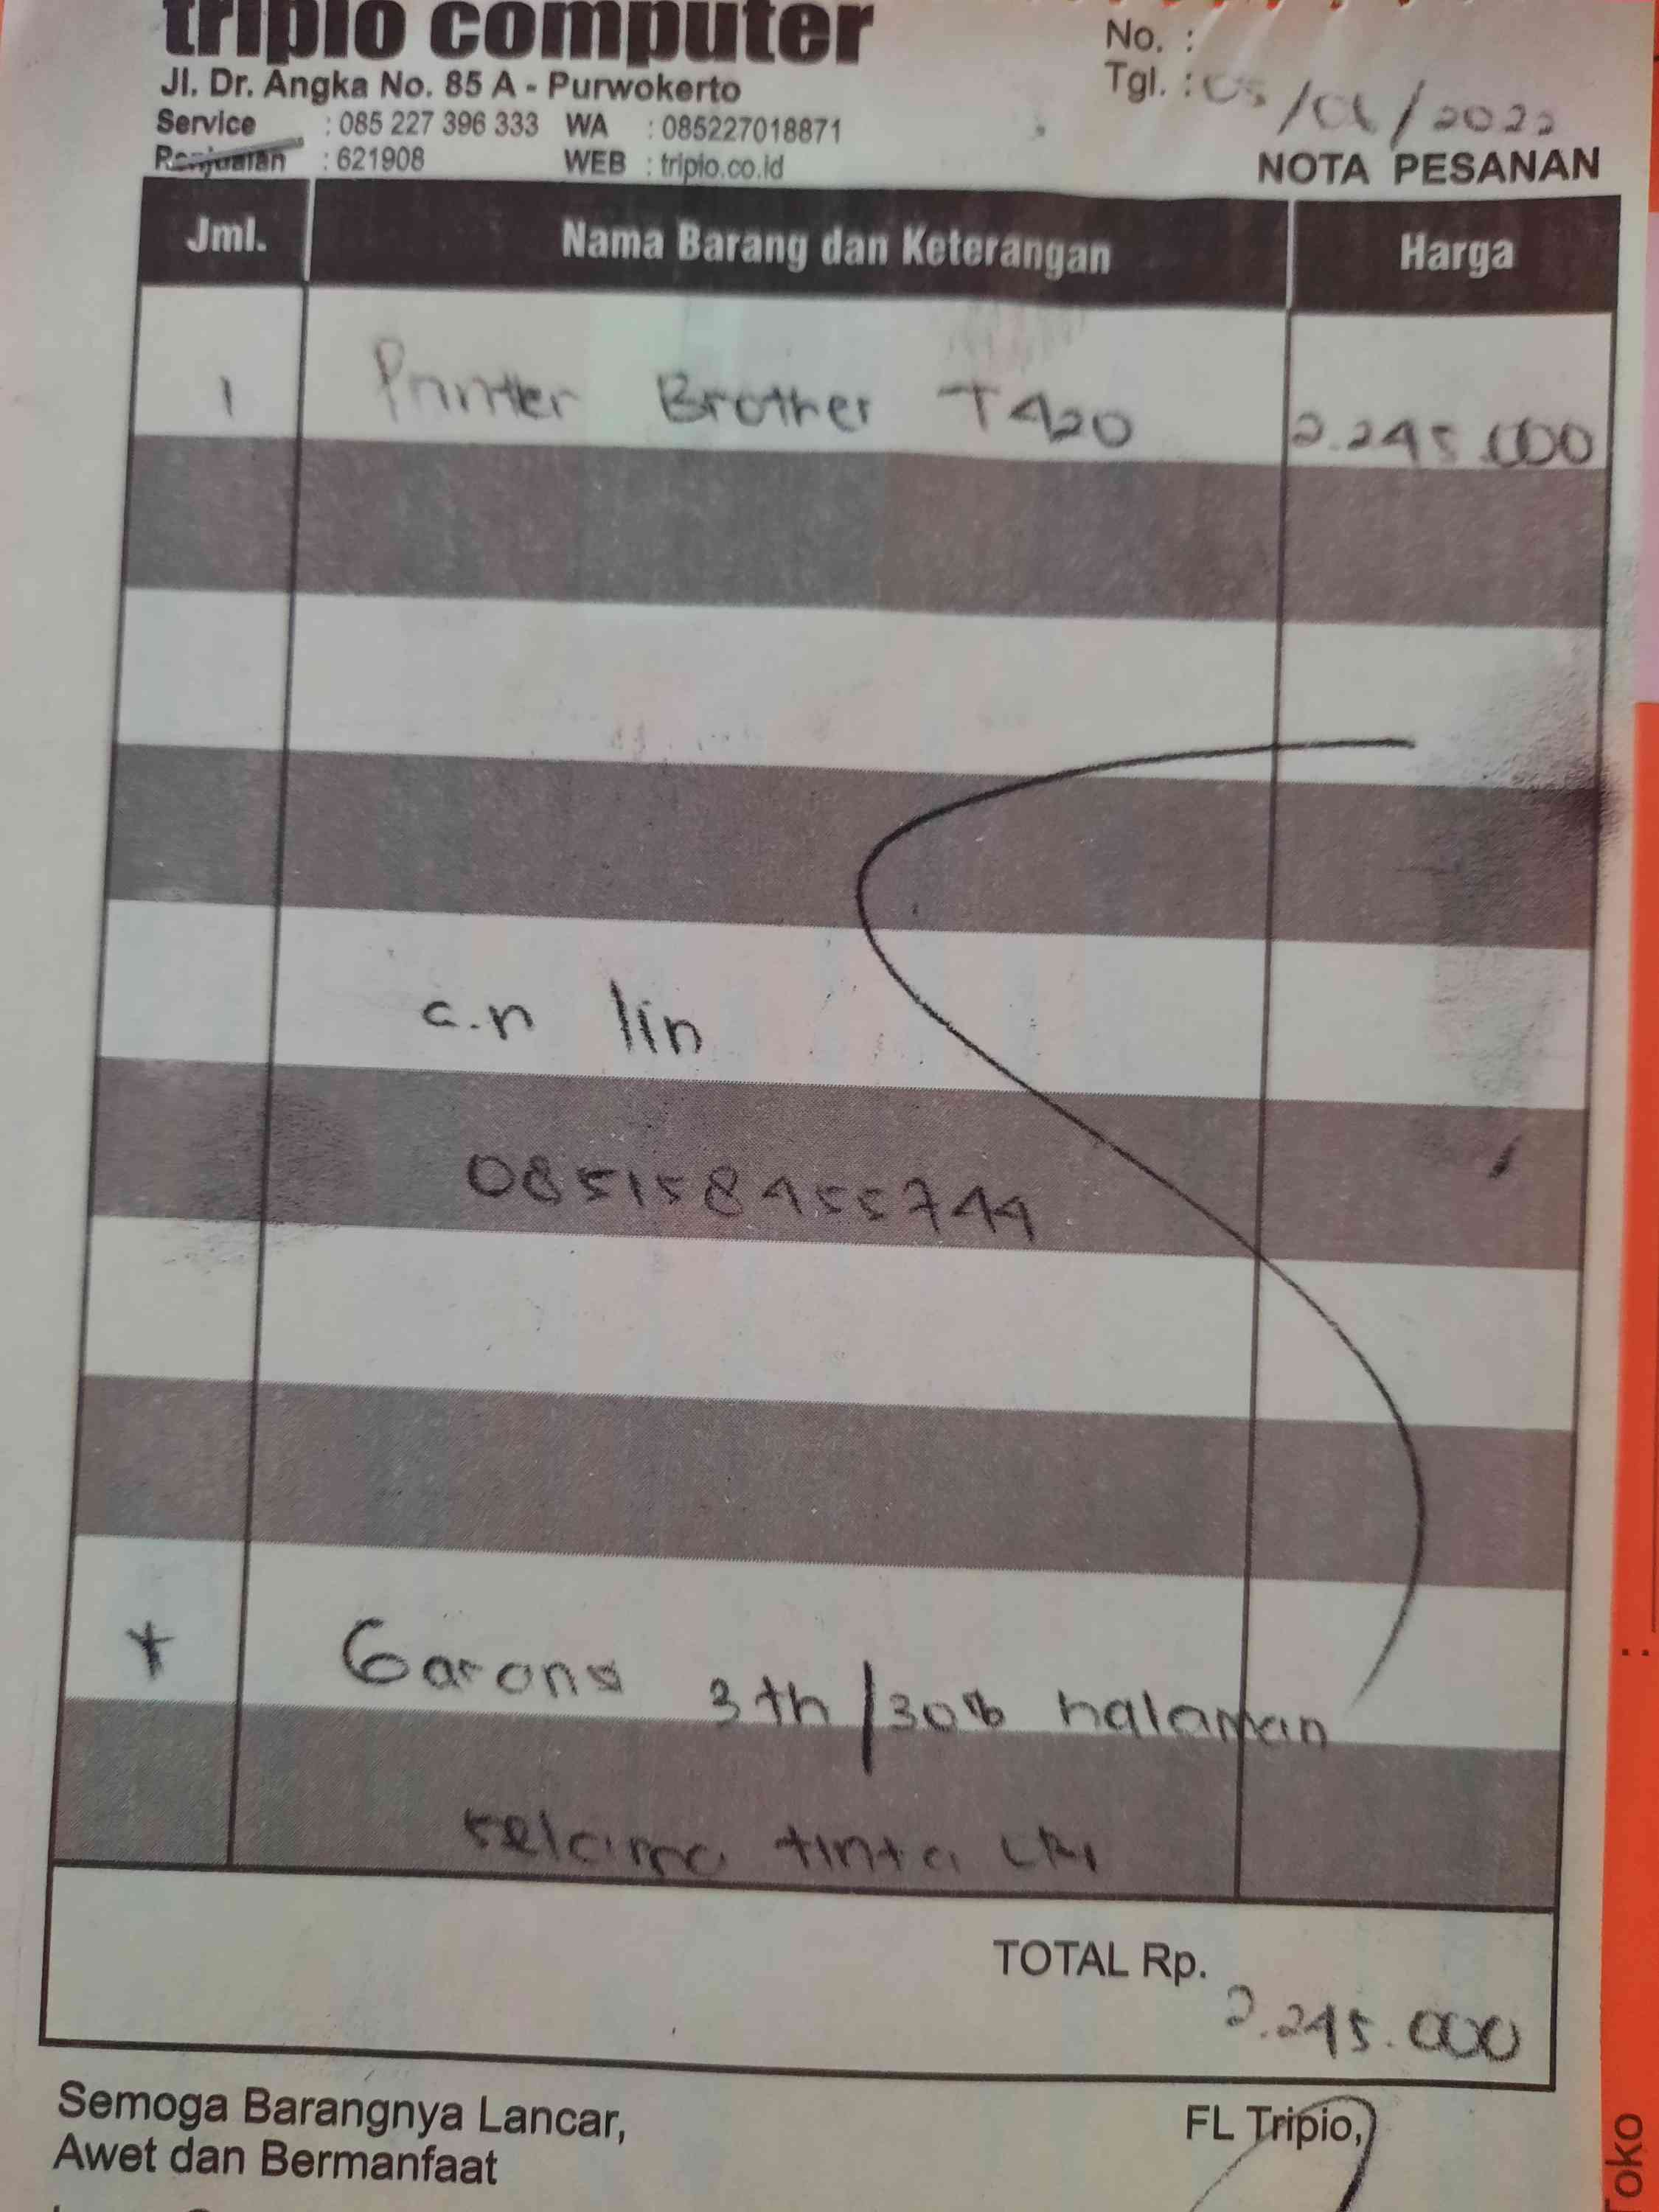 tripio computer
Jl. Dr. Angka No. 85 A - Purwokerto
Service : 085 227 396 333 WA : 085227018871
Penjualan : 621908 WEB : tripio.co.id
No. :
Tgl. : 05/01/2022
NOTA PESANAN
Jml. Nama Barang dan Keterangan Harga
1 Printer Brother T420 2.245.000
a.n Iin
085158455744
* Garansi 3th/30rb halaman
selama tinta ori
TOTAL Rp. 2.245.000
Semoga Barangnya Lancar,
Awet dan Bermanfaat
FL Tripio,
Toko